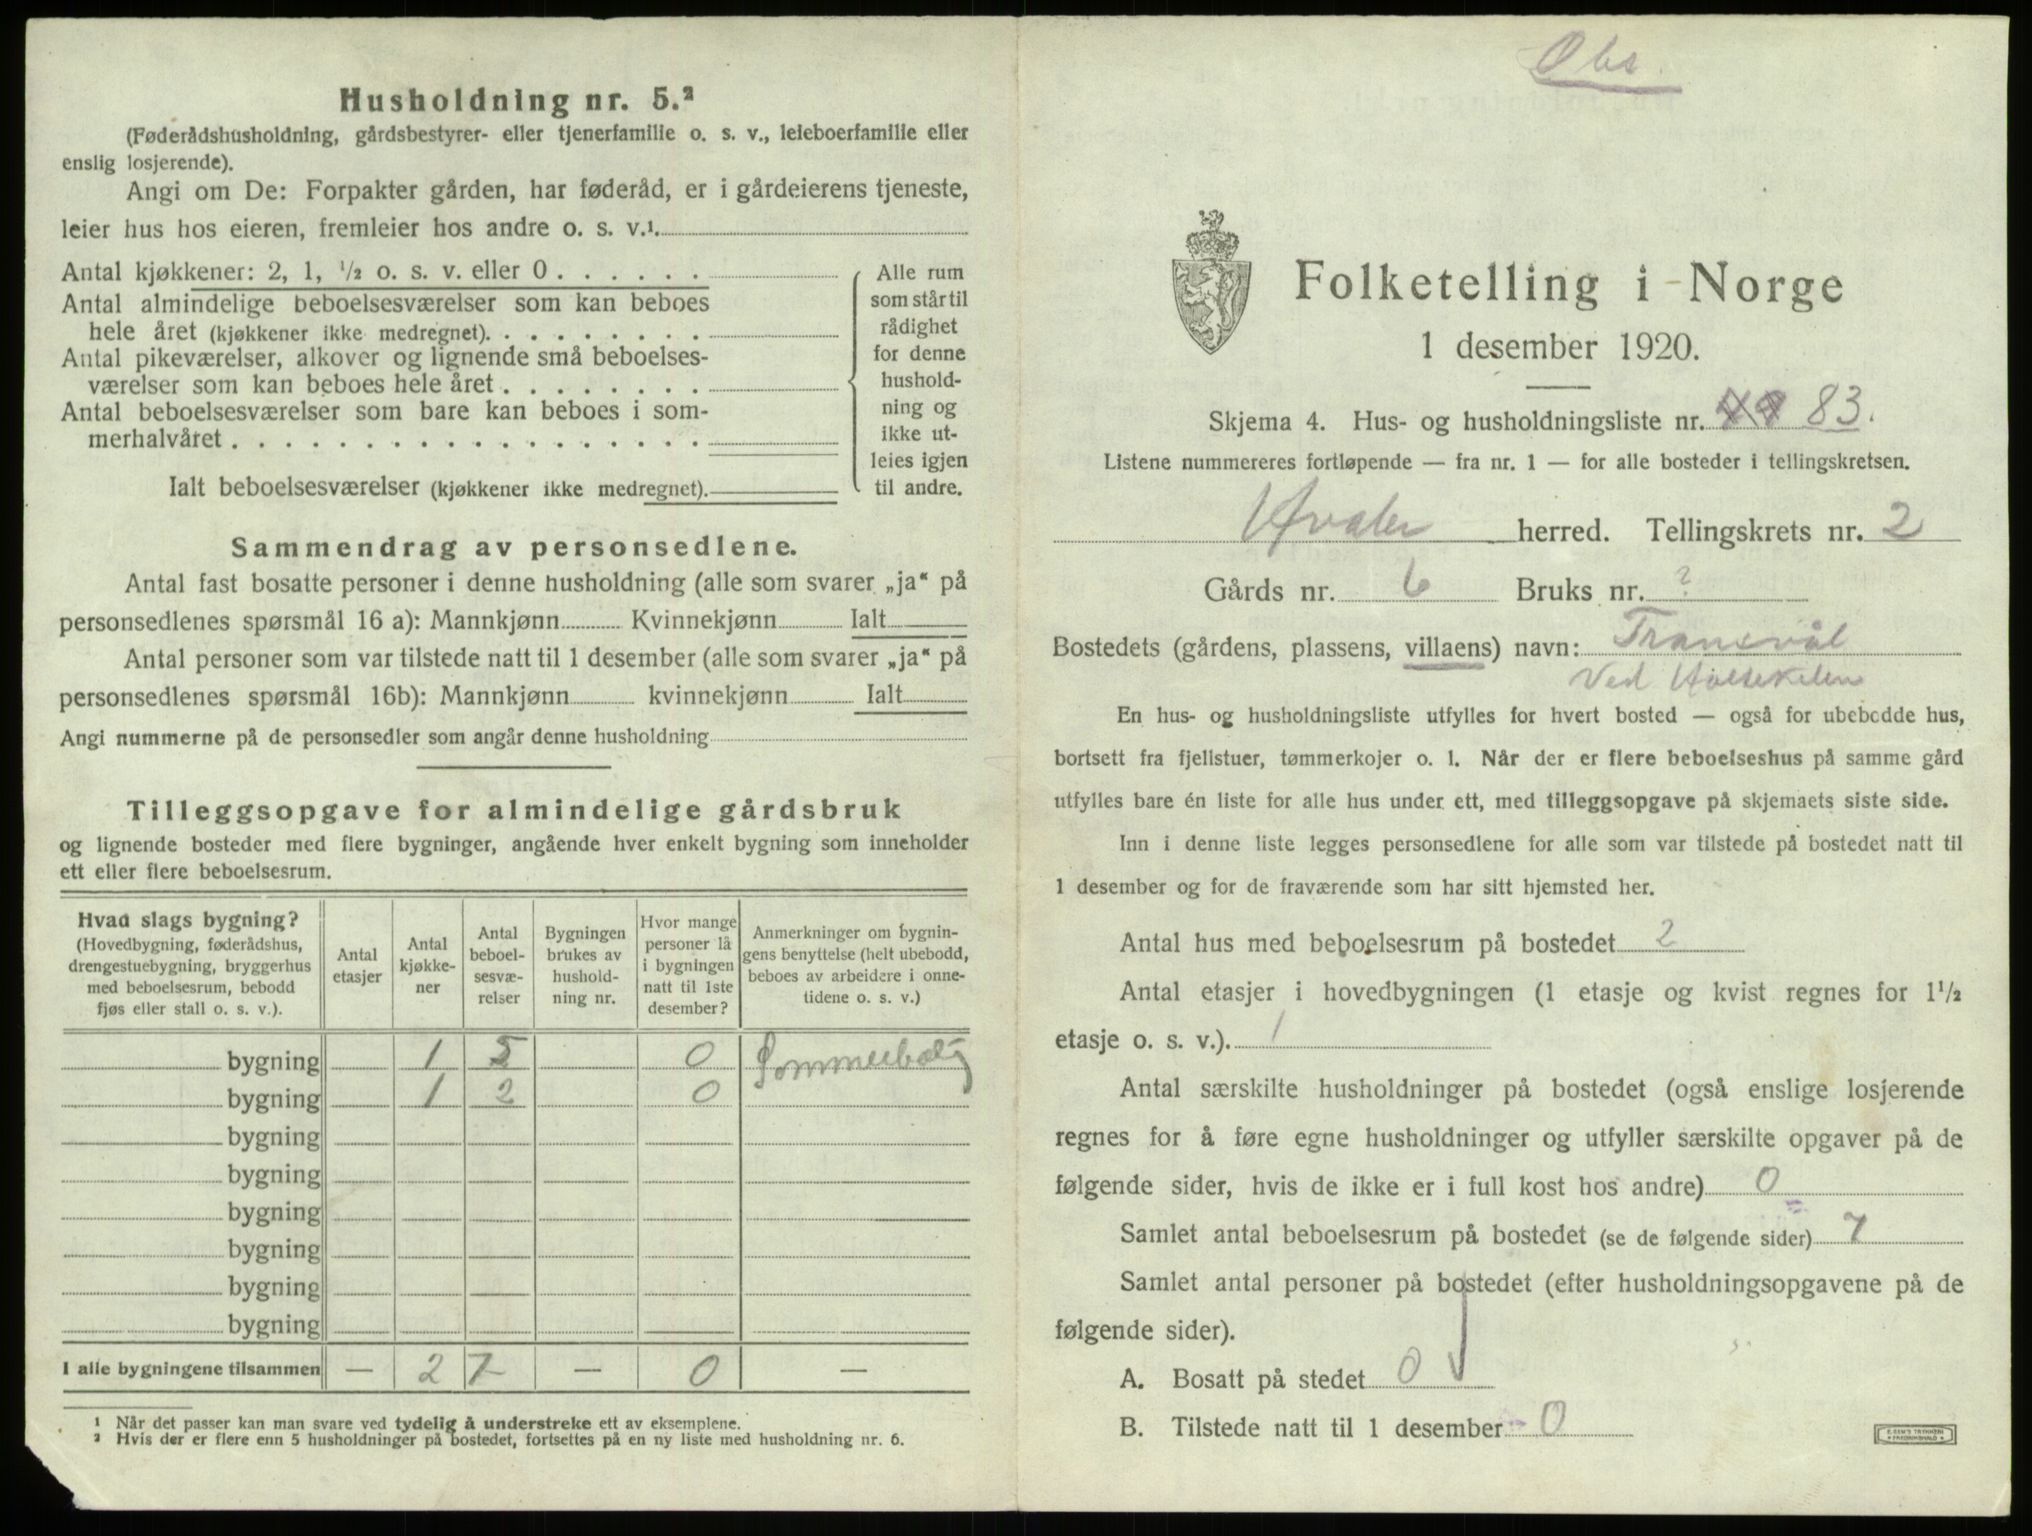 Husholdning nr. 5.²
(Føderådshusholdning, gårdsbestyrer- eller tjenerfamilie o. s. v., leieboerfamilie eller
enslig losjerende).
Angi om De: Forpakter gården, har føderåd, er i gårdeierens tjeneste,
leier hus hos eieren, fremleier hos andre o. s. v.¹
Antal kjøkkener: 2, 1, ½ o. s. v. eller 0 . . . . . .
Antal almindelige beboelsesværelser som kan beboes
hele året (kjøkkener ikke medregnet). . . . . . . . .
Antal pikeværelser, alkover og lignende små beboelses-
værelser som kan beboes hele året . . . . . . . .
Antal beboelsesværelser som bare kan beboes i som-
merhalvåret . . . . . . . . . . . . . . . . . .
Ialt beboelsesværelser (kjøkkener ikke medregnet).
Alle rum
som står til
rådighet
for denne
hushold-
ning og
ikke ut-
leies igjen
til andre.
Sammendrag av personsedlene.
Antal fast bosatte personer i denne husholdning (alle som svarer „ja“ på
personsedlenes spørsmål 16 a): Mannkjønn Kvinnekjønn Ialt
Antal personer som var tilstede natt til 1 desember (alle som svarer „ja“ på
personsedlenes spørsmål 16b): Mannkjønn kvinnekjønn Ialt
Angi nummerne på de personsedler som angår denne husholdning
Tilleggsopgave for almindelige gårdsbruk
og lignende bosteder med flere bygninger, angående hver enkelt bygning som inneholder
ett eller flere beboelsesrum.
Hvad slags bygning?
(Hovedbygning, føderådshus,
drengestuebygning, bryggerhus
med beboelsesrum, bebodd
fjøs eller stall o. s. v.).
Antal
etasjer
Antal
kjøkke-
ner
Antal
beboel-
sesvæ-
relser
Bygningen
brukes av
hushold-
ning nr.
Hvor mange
personer lå
i bygningen
natt til 1ste
desember?
Anmerkninger om bygnin-
gens benyttelse (helt ubebodd,
beboes av arbeidere i onne-
tidene o. s. v.)
bygning 1 5 0 Sommerbolig
bygning 1 2 0
bygning
bygning
bygning
bygning
bygning
bygning
I alle bygningene tilsammen — 2 7 — 0 —
¹ Når det passer kan man svare ved tydelig å understreke ett av eksemplene.
² Hvis der er flere enn 5 husholdninger på bostedet, fortsettes på en ny liste med husholdning nr. 6.
Obs.
Folketelling i Norge
1 desember 1920.
Skjema 4. Hus- og husholdningsliste nr. 83.
Listene nummereres fortløpende — fra nr. 1 — for alle bosteder i tellingskretsen.
Hvaler herred. Tellingskrets nr. 2
Gårds nr. 6 Bruks nr. ?
Bostedets (gårdens, plassens, villaens) navn: Transvål
Ved Holtekilen
En hus- og husholdningsliste utfylles for hvert bosted — også for ubebodde hus,
bortsett fra fjellstuer, tømmerkojer o. l. Når der er flere beboelseshus på samme gård
utfylles bare én liste for alle hus under ett, med tilleggsopgave på skjemaets siste side.
Inn i denne liste legges personsedlene for alle som var tilstede på bostedet natt til
1 desember og for de fraværende som har sitt hjemsted her.
Antal hus med beboelsesrum på bostedet 2
Antal etasjer i hovedbygningen (1 etasje og kvist regnes for 1½
etasje o. s. v.). 1
Antal særskilte husholdninger på bostedet (også enslige losjerende
regnes for å føre egne husholdninger og utfyller særskilte opgaver på de
følgende sider, hvis de ikke er i full kost hos andre) 0
Samlet antal beboelsesrum på bostedet (se de følgende sider) 7
Samlet antal personer på bostedet (efter husholdningsopgavene på de
følgende sider).
A. Bosatt på stedet 0
B. Tilstede natt til 1 desember 0